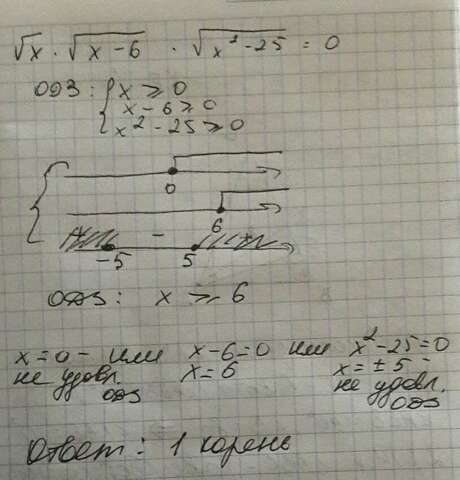 √x · √x-6 · √x²-25 = 0
ОДЗ: { x ≥ 0
x - 6 ≥ 0
x² - 25 ≥ 0
0
6
+ - +
-5 5
ОДЗ: x ≥ 6
x = 0 - или x-6=0 или x²-25=0
не удовл. x = 6 x = ± 5 -
ОДЗ не удовл.
ОДЗ
Ответ: 1 корень